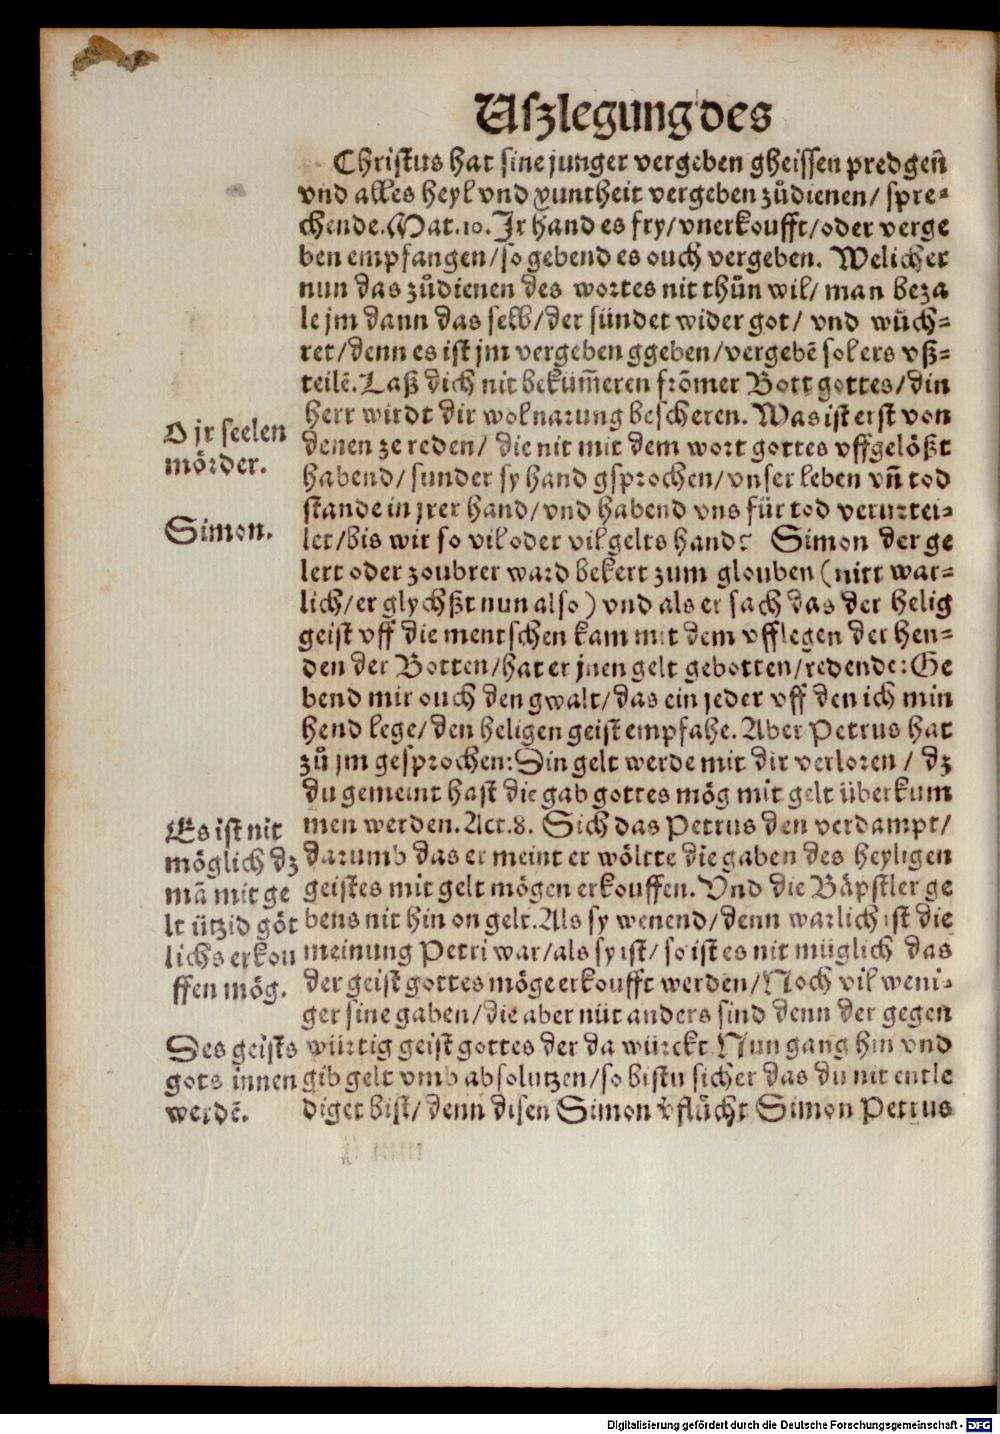 Uſzlegung des
Chriſtus hat ſine junger vergeben gheiſſen predgeñ
vnd alles heyl vnd xuntheit vergeben zůdienen/ ſpre⸗
chende. Mat.10. Jr hand es fry/vnerkoufft/oder verge
ben empfangen/ſo gebend es ouch vergeben. Welicher
nun das zůdienen des wortes nit thůn wil/ man beza
le jm dann das ſelb/der ſündet wider got/ vnd wůch⸗
ret/denn es iſt jm vergeben ggeben/vergebē ſol ers vß⸗
teilē. Laß dich nit bekūm̄eren frōmer Bott gottes/din
herr wirdt dir wol narung beſcheren. Was iſt erſt von
denen ze reden/ die nit mit dem wort gottes vffgelößt
habend/ſunder ſy hand gſprochen/vnſer leben vñ tod
ſtande in jrer hand/vnd habend vns für tod verurtei⸗
let/bis wir ſo vil oder vil gelts hand? Simon der ge
lert oder zoubrer ward bekert zum glouben (nitt war⸗
lich/er glychßt nun alſo) vnd als er ſach das der helig
geiſt vff die mentſchen kam mit dem vfflegen der hen⸗
den der Botten/hat er jnen gelt gebotten/redende: Ge
bend mir ouch den gwalt/das ein jeder vff den ich min
hend lege/den heligen geiſt empfahe. Aber Petrus hat
zů jm geſprochen: Din gelt werde mit dir verloren/ dz
du gemeint haſt die gab gottes mög mit gelt überkum
men werden. Act.8. Sich das Petrus den verdampt/
darumb das er meint er wöltte die gaben des heyligen
geiſtes mit gelt mögen erkouffen. Vnd die Bäpſtler ge
bens nit hin on gelt. Als ſy wenend/denn warlich iſt die
meinung Petri war/als ſy iſt/ ſo iſt es nit müglich das
der geiſt gottes möge erkoufft werden/Noch vil weni⸗
ger ſine gaben/die aber nüt anders ſind denn der gegen
würtig geiſt gottes der da würckt. Nun gang hin vnd
gib gelt vmb abſolutzen/ſo biſtu ſicher das du nit entle
diget biſt/denn diſen Simon v̊flůcht Simon Petrus
O jr ſeelen
mörder.
Simon.
Es iſt nit
möglich dz
mā mit ge
lt ützid göt
lichs erkou
ffen mög.
Des geiſts
gots innen
werdē.
Digitalisierung gefördert durch die Deutsche Forschungsgemeinschaft - DFG